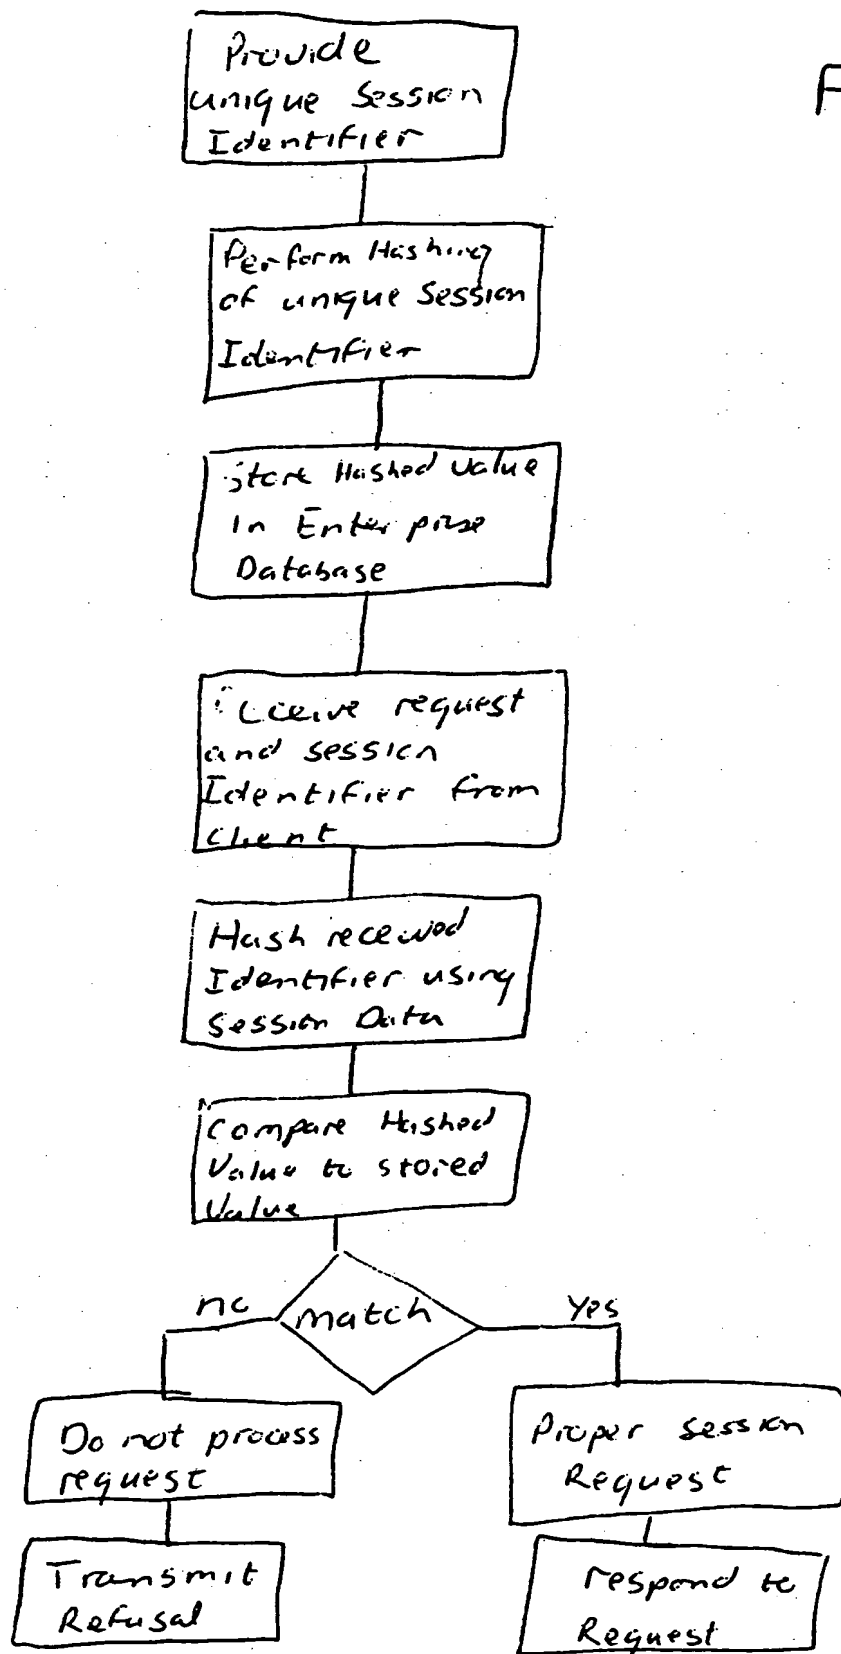 Provide
unique Session
Identifier
F
Perform Hashing
of unique Session
Identifier
Store Hashed Value
In Enterprise
Database
receive request
and session
Identifier from
client
Hash received
Identifier using
Session Data
Compare Hashed
Value to stored
Value
match
no
Yes
Do not process
request
Proper session
Request
Transmit
Refusal
respond to
Request